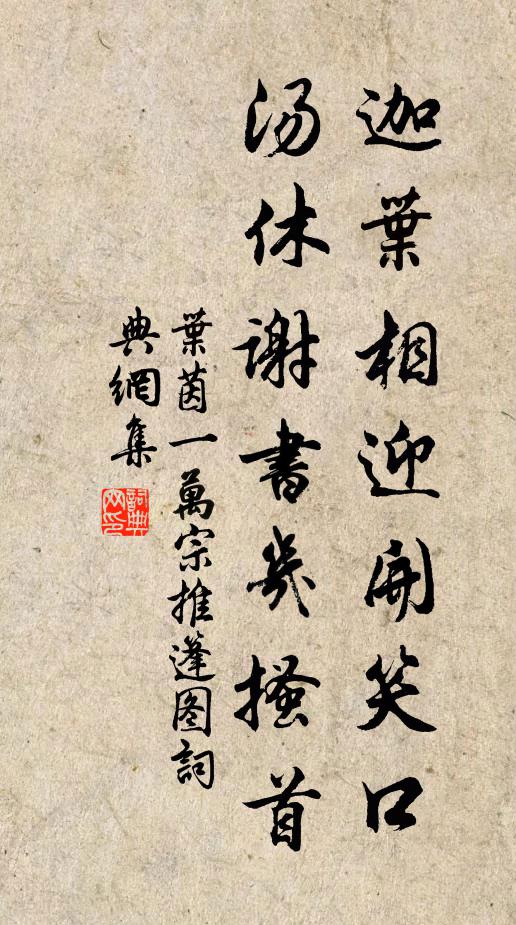 迦葉相迎開笑口
湯休謝書幾搔首
葉茵一萬宗推篷图詞
典網集
詞典
网印